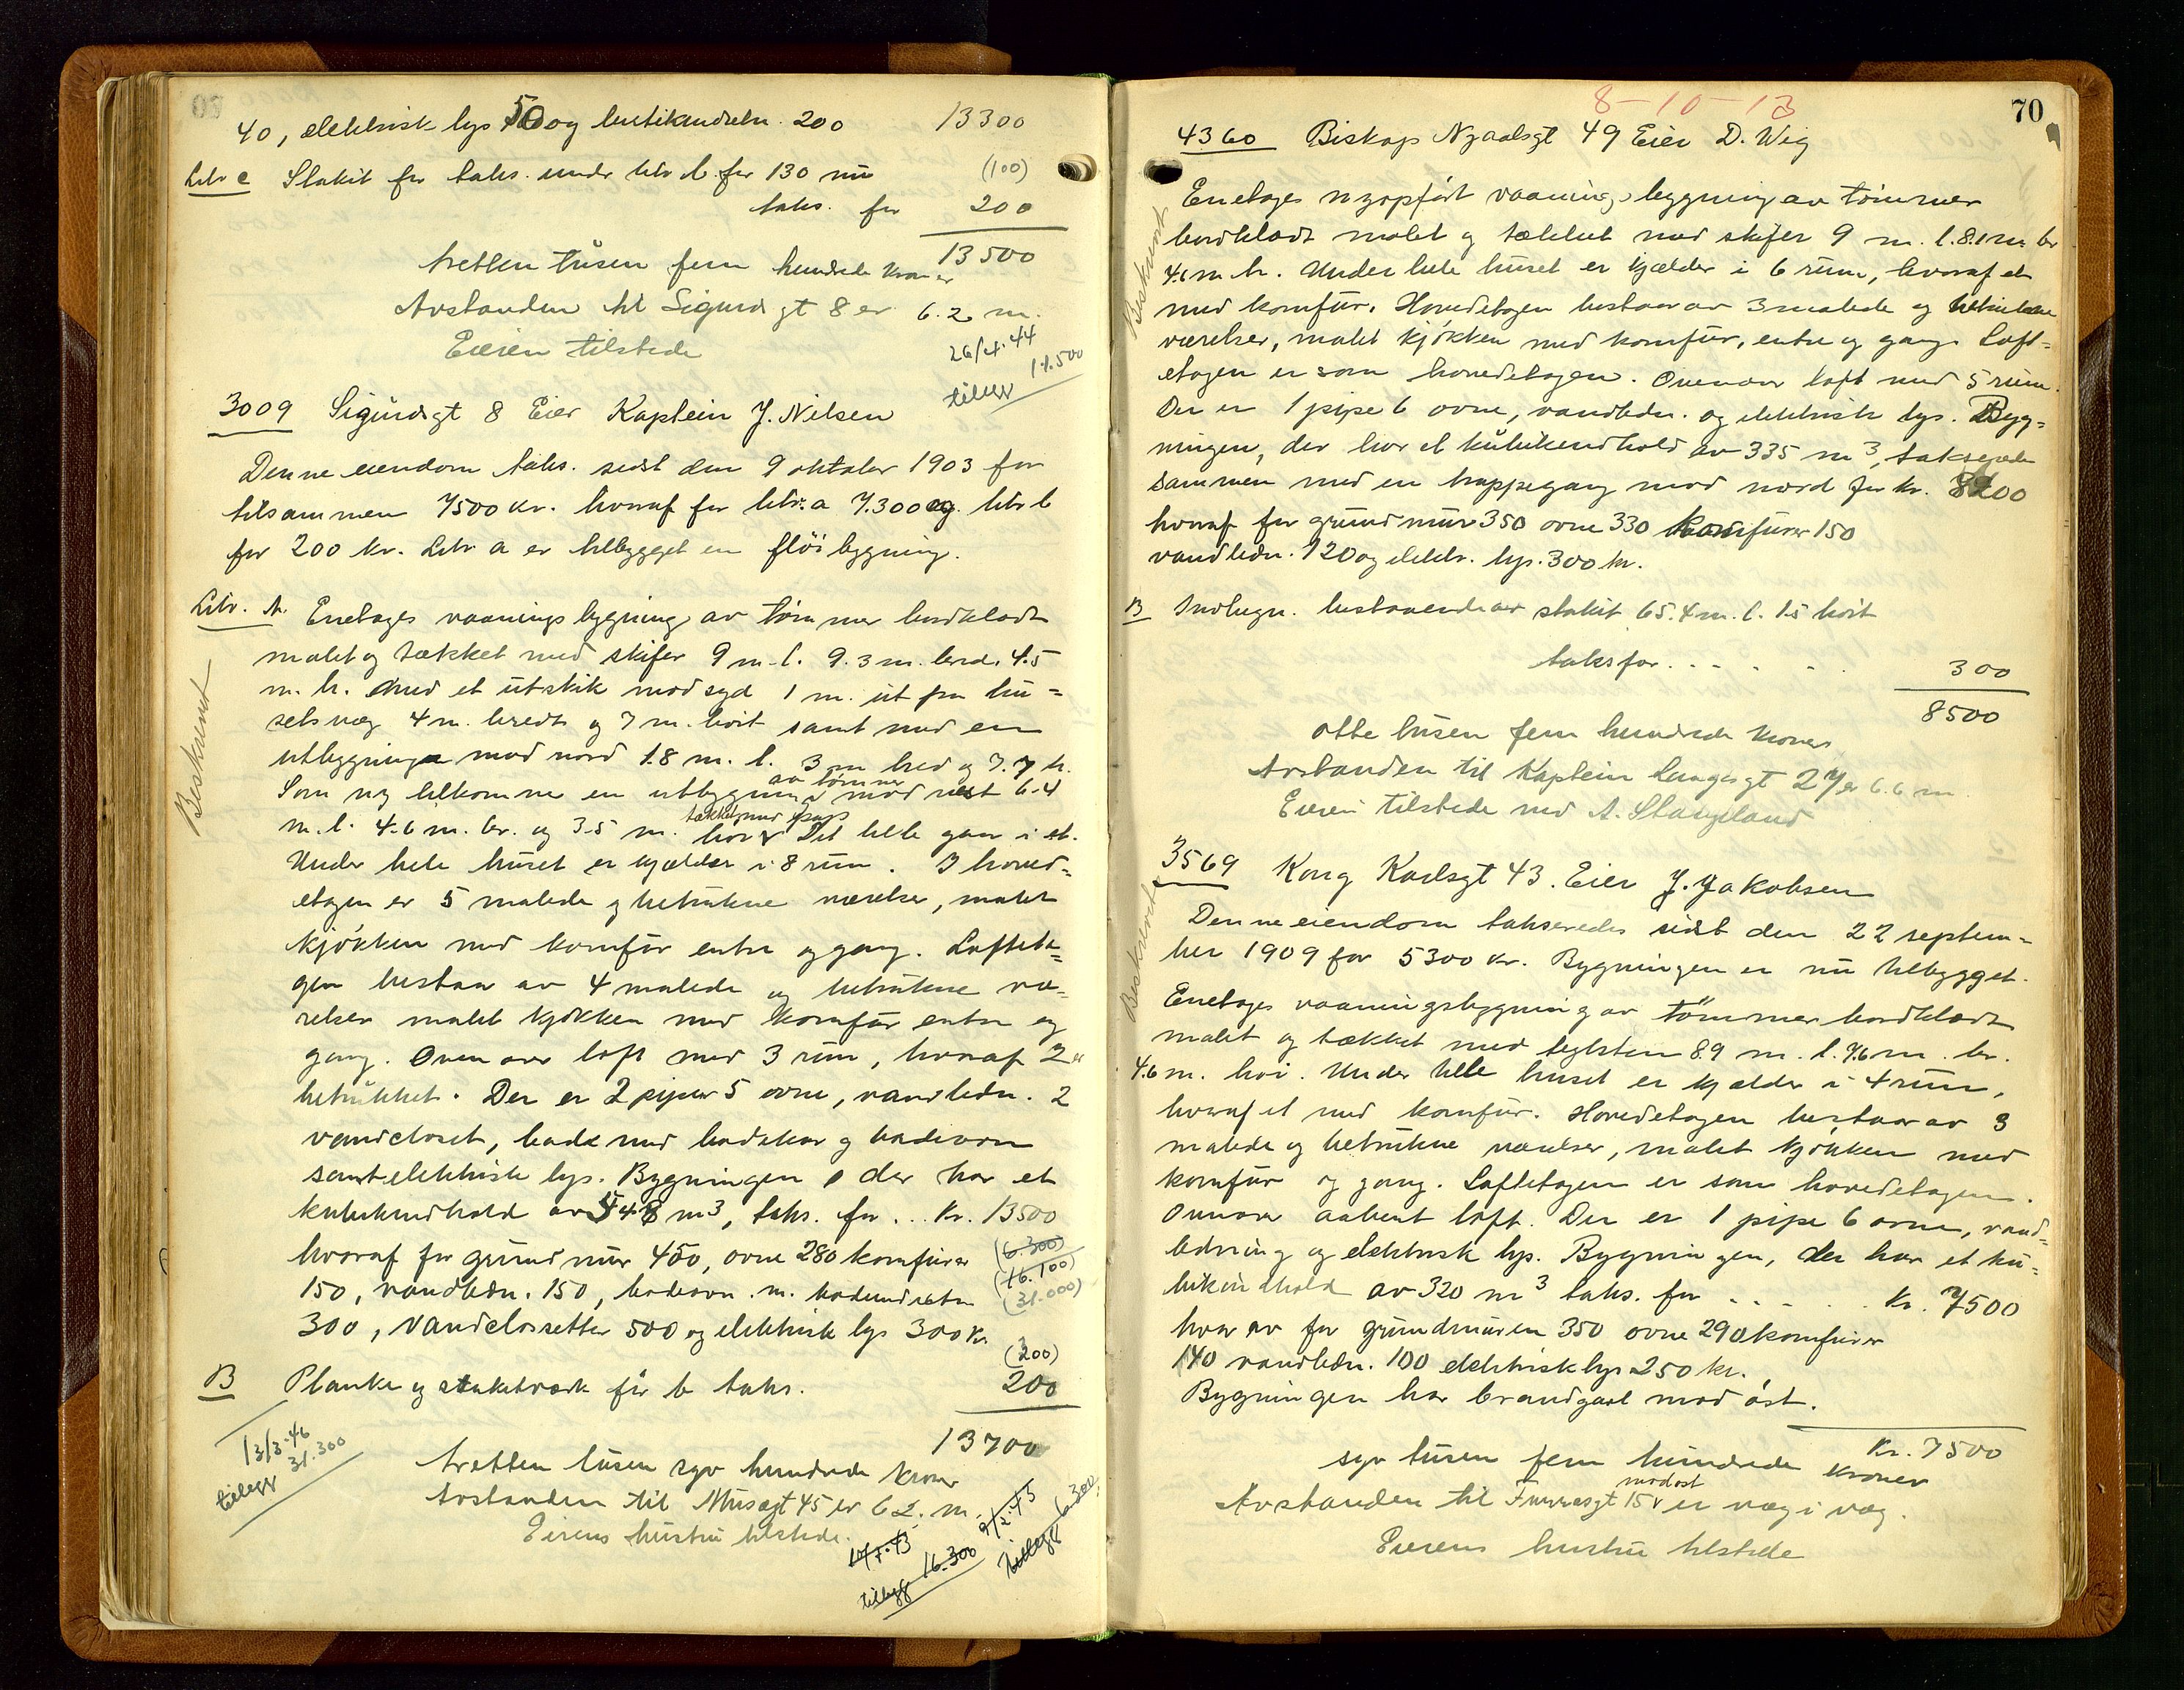 40, elektrisk lys 50 og butikindretn. 200 13300
Litr c Stakit før taks. under litr b. for 130 nu (100)
taks. for 200
13500
tretten tusen fem hundrede kroner
Avstanden til Sigurdsgt 8 er 6.2 m.
Eieren tilstede
26/4.44
tillegg 11.500
3009 Sigurdsgt 8 Eier Kaptein J. Nilsen
Denne eiendom taks. sidst den 9 oktober 1903 for
tilsammen 7500 kr. hvoraf for litr. a 7.300 og litr b
for 200 kr. Litr a er tilbygget en fløibygning.
Beskrevet
Litr. A. Enetages vaaningsbygning av tømmer bordklædt
malet og tækket med skifer 9 m. l. 9.3 m. bred. 4.5
m. h. med et utstik mod syd 1 m. ut fra hu=
sets væg 4 m. bredt og 7 m. høit samt med en
utbygning mod nord 1.8 m. l. 3 m bred og 7.7 h.
av tømmer
Som ny tilkommer en utbygning mod vest 6.4
tækket med
m. l. 4.6 m. br. og 3.5 m. høi Det hele gaar i et.
Under hele huset er kjælder i 8 rum. I hoved=
etagen er 5 malede og betrukne værelser, malet
kjøkken med komfur entre og gang. Lofteta=
gen bestaar av 4 malede og betrukne væ=
relser malet kjøkken med komfur entre og
gang. Ovenover loft med 3 rum, hvoraf 2 er
betrukket. Der er 2 piper 5 ovne, vandledn. 2
vandcloset, bad med badekar og badeovn
samt elektrisk lys. Bygningen der har et
kubikindhold av 548 m³, taks. for ... Kr. 13500
hvoraf for grundmur 450, ovne 280 komfurer (6.300)
150, vandledn. 150, badeovn. m. badeindretn (16.100)
(31.000)
300, vandclosetter 500 og elektrisk lys 300 kr.
(200)
B Planke og stakitværk før b taks. 200
13700
13/3-46
tillegg 31.300
tretten tusen syv hundrede kroner
Avstanden til Musægt 45 er 6.2. m.
Eierens hustru tilstede.
tillegg 16.300
9/2.43
tillegg 6.300
8-10-13
70
4360 Biskop Njaalsgt 49 Eier D. Wig
Beskrevet
Enetages nyopført vaaningsbygning av tømmer
bordklædt malet og tækket med skifer 9 m. l. 8.1 m. br
4.6 m h. Under hele huset er kjælder i 6 rum, hvoraf et
med komfur. Hovedetagen bestaar av 3 malede og betrukne
værelser, malet kjøkken med komfur, entre og gang. Loft=
etagen er som hovedetagen. Ovenover loft med 5 rum.
Der er 1 pipe 6 ovne, vandledn. og elektrisk lys. Byg=
ningen, der har et kubikindhold av 335 m³, takseredes
sammen med en trappegang mod nord for kr. 8200
hvoraf for grundmur 350 ovne 330 komfurer 150
vandledn. 120 og elektr. lys. 300 kr.
B Indhegn. bestaaende av stakit 65.4 m. l. 1.5 høit
taks for . . . . . 300
8500
otte tusen fem hundrede kroner
Avstanden til Kaptein Langesgt 27 er 6.6 m.
Eieren tilstede ved A. Stangeland
3569 Kong Karlsgt 43. Eier J. Jakobsen
Beskrevet
Denne eiendom takseredes sidst den 22 septem=
ber 1909 for 5300 kr. Bygningen er nu tilbygget.
Enetages vaaningsbygning av tømmer bordklædt
malet og tækket med teglsten 8.9 m. l. 7.6 m. br.
4.6 m. høi. Under hele huset er kjælder i 4 rum,
hvoraf et med komfur. Hovedetagen bestaar av 3
malede og betrukne værelser, malet kjøkken med
komfur og gang. Loftetagen er som hovedetagen.
Ovenover aabent loft. Der er 1 pipe 6 ovne, vand=
ledning og elektrisk lys. Bygningen, der har et ku=
bikindhold av 320 m³ taks. for . . . . . Kr. 7500
hvorav for grundmuren 350 ovne 290 komfurer
140 vandledn. 100 elektrisk lys 250 kr.
Bygningen har brandgavl mod øst.
Kr. 7500
syv tusen fem hundrede kroner
mod øst
Avstanden til Furrasgt 15 er væg i væg.
Eierens hustru tilstede